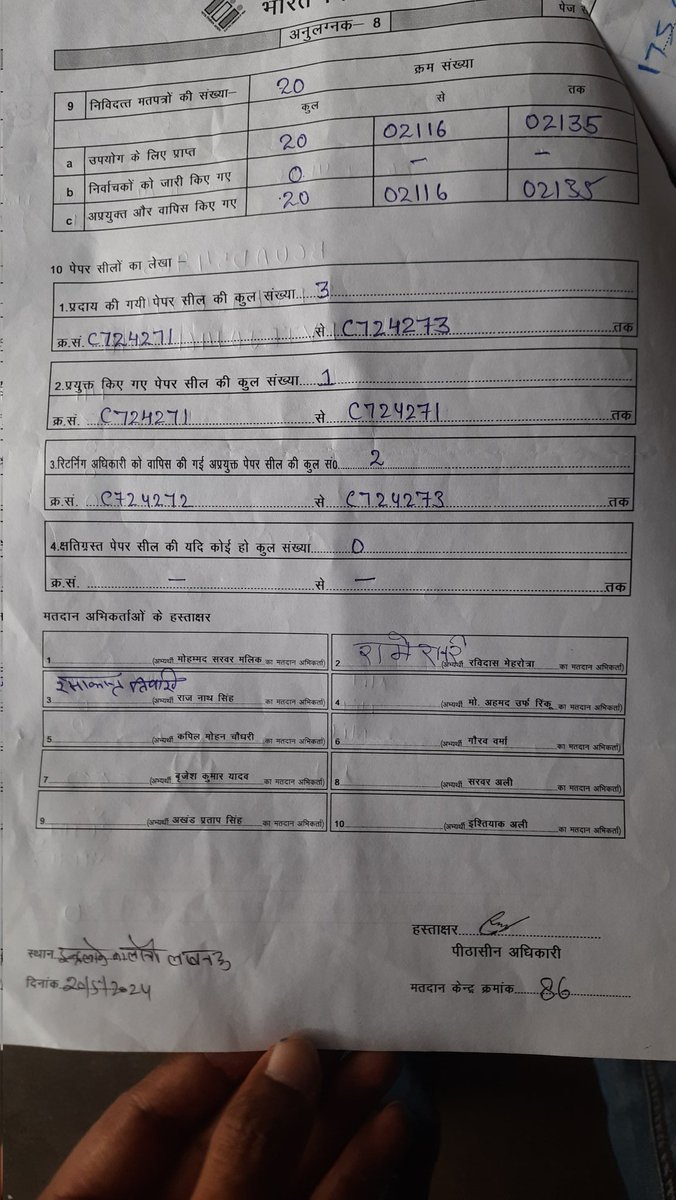 भारत
अनुलग्नक– 8
पेज
175
9 निविदत्त मतपत्रों की संख्या– 20 क्रम संख्या
कुल से तक
a उपयोग के लिए प्राप्त 20 02116 02135
b निर्वाचकों को जारी किए गए 0 – –
c अप्रयुक्त और वापिस किए गए 20 02116 02135
10 पेपर सीलों का लेखा –
1.प्रदाय की गयी पेपर सील की कुल संख्या 3
क्र.सं. C724271 से C724273 तक
2.प्रयुक्त किए गए पेपर सील की कुल संख्या 1
क्र.सं. C724271 से C724271 तक
3.रिटर्निंग अधिकारी को वापिस की गई अप्रयुक्त पेपर सील की कुल सं0 2
क्र.सं. C724272 से C724273 तक
4.क्षतिग्रस्त पेपर सील की यदि कोई हो कुल संख्या 0
क्र.सं. – से – तक
मतदान अभिकर्ताओं के हस्ताक्षर
1 (अभ्यर्थी मोहम्मद सरवर मलिक का मतदान अभिकर्ता)
2 (अभ्यर्थी रविदास मेहरोत्रा का मतदान अभिकर्ता)
3 (अभ्यर्थी राज नाथ सिंह का मतदान अभिकर्ता)
4 (अभ्यर्थी मो. अहमद उर्फ रिंकू का मतदान अभिकर्ता)
5 (अभ्यर्थी कपिल मोहन चौधरी का मतदान अभिकर्ता)
6 (अभ्यर्थी गौरव वर्मा का मतदान अभिकर्ता)
7 (अभ्यर्थी बृजेश कुमार यादव का मतदान अभिकर्ता)
8 (अभ्यर्थी सरवर अली का मतदान अभिकर्ता)
9 (अभ्यर्थी अखंड प्रताप सिंह का मतदान अभिकर्ता)
10 (अभ्यर्थी इश्तियाक अली का मतदान अभिकर्ता)
हस्ताक्षर
पीठासीन अधिकारी
स्थान लखनऊ
दिनांक 20/5/2024
मतदान केन्द्र क्रमांक 86